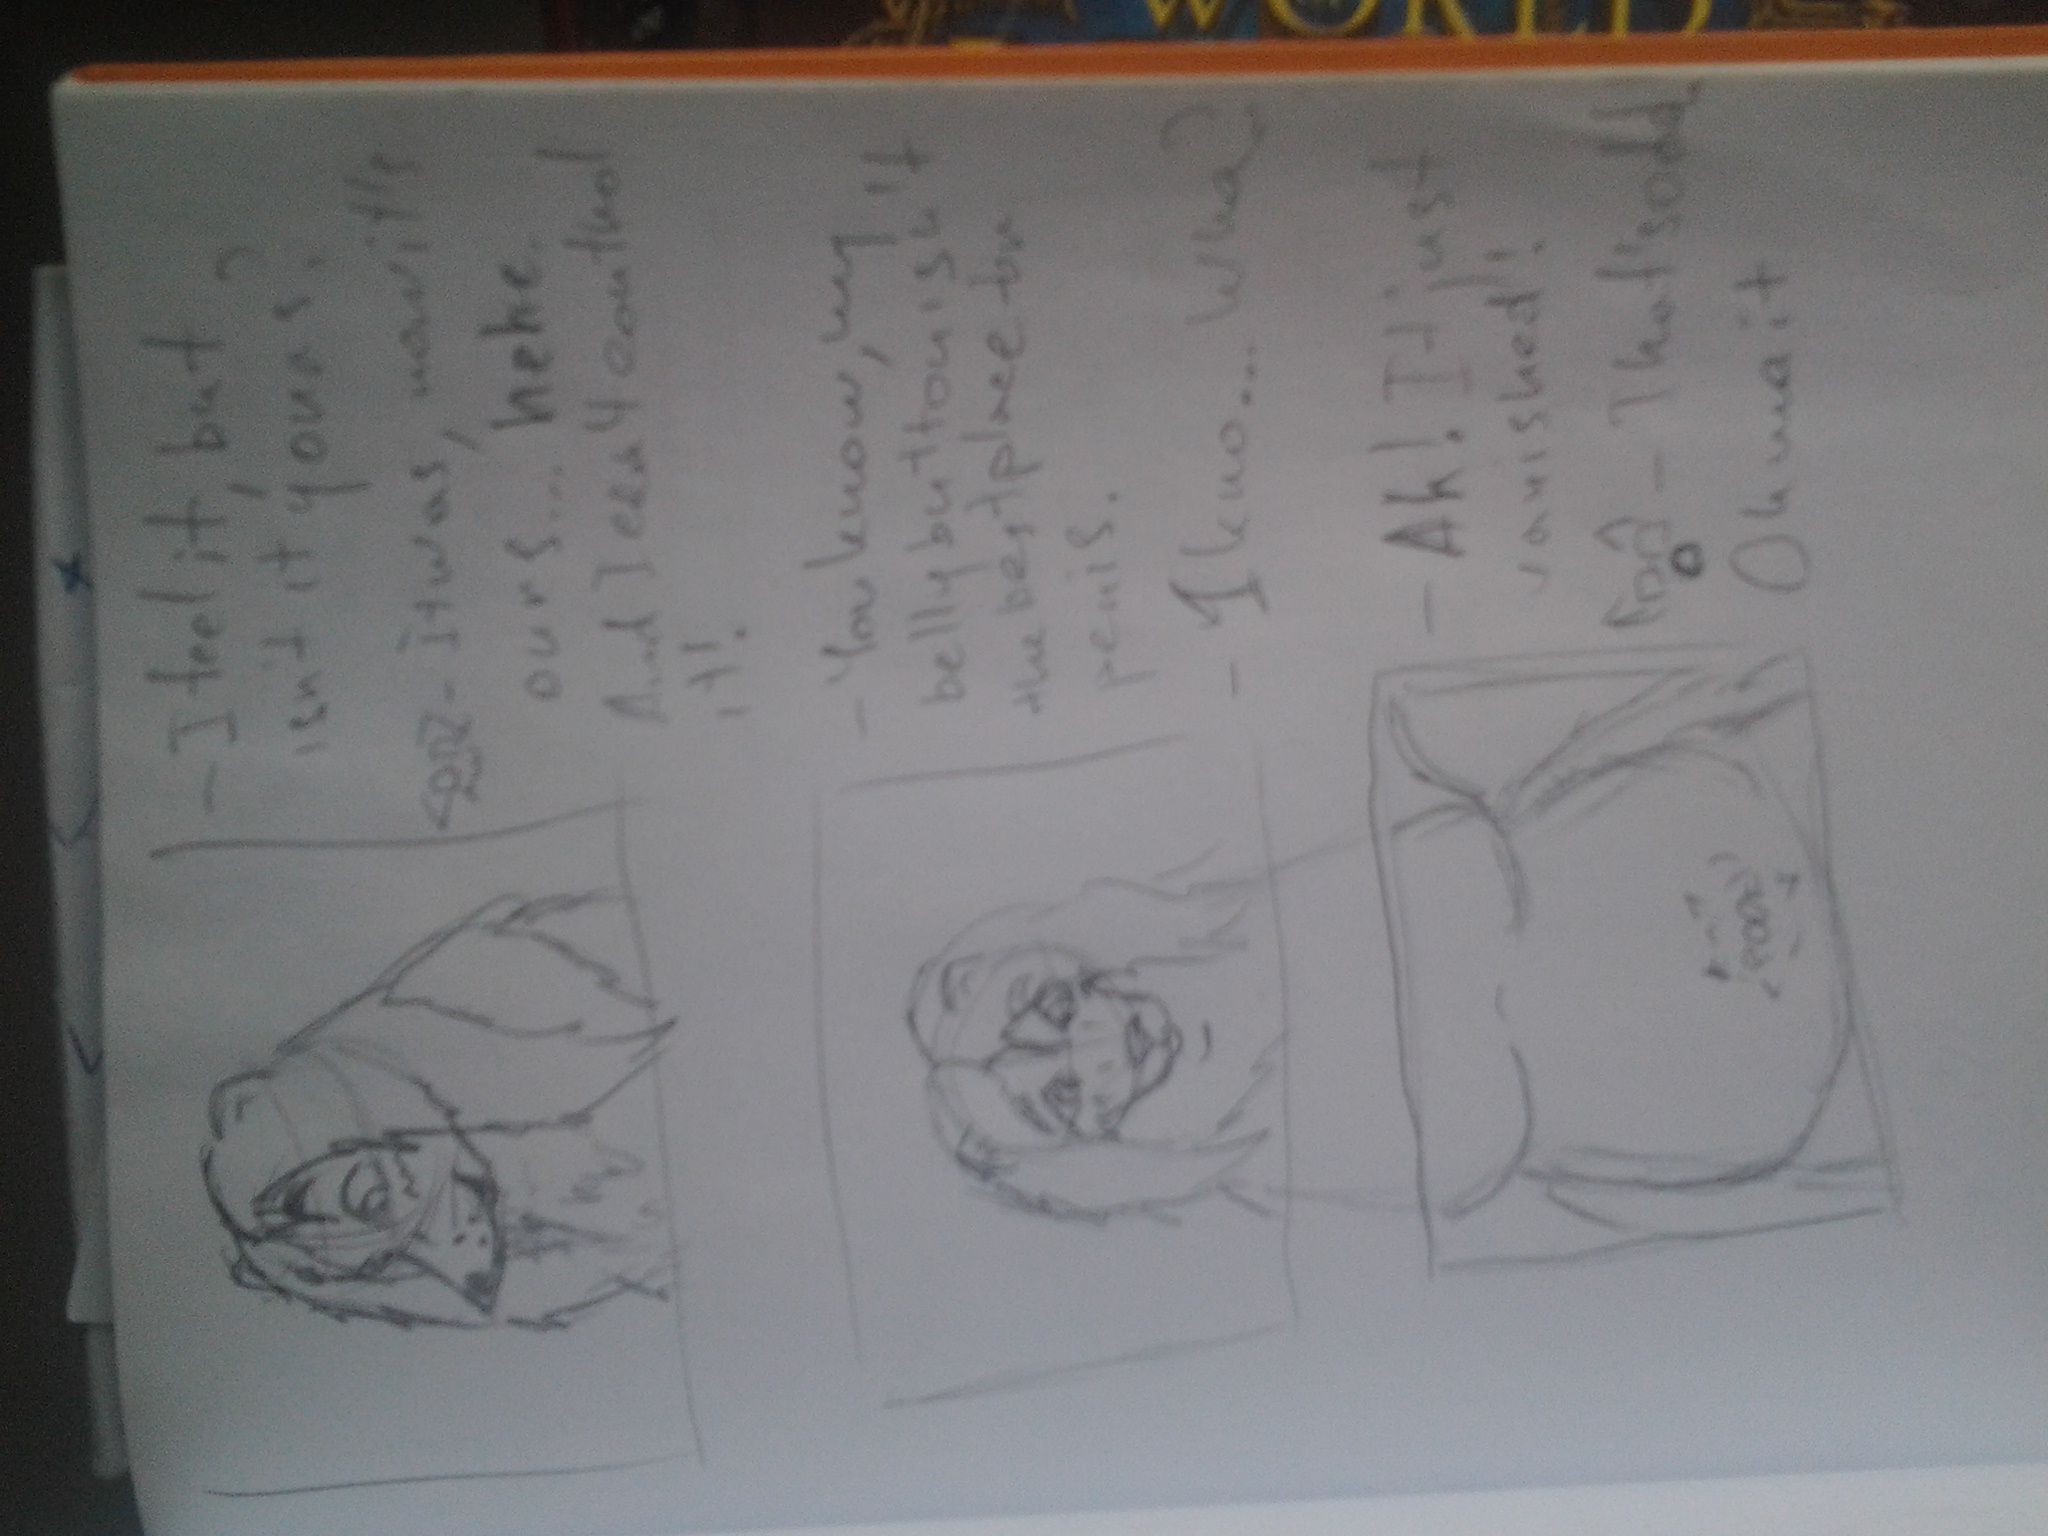 WORLD
- I feel it, but
isn't it yours?
- it was, now it's
ours... hehe.
And I can't control
it!
- You know, my
bellybutton isn't
the best place for
penis.
- I kno... wha?
- Ah! It just
vanished!
- That's odd.
POOF